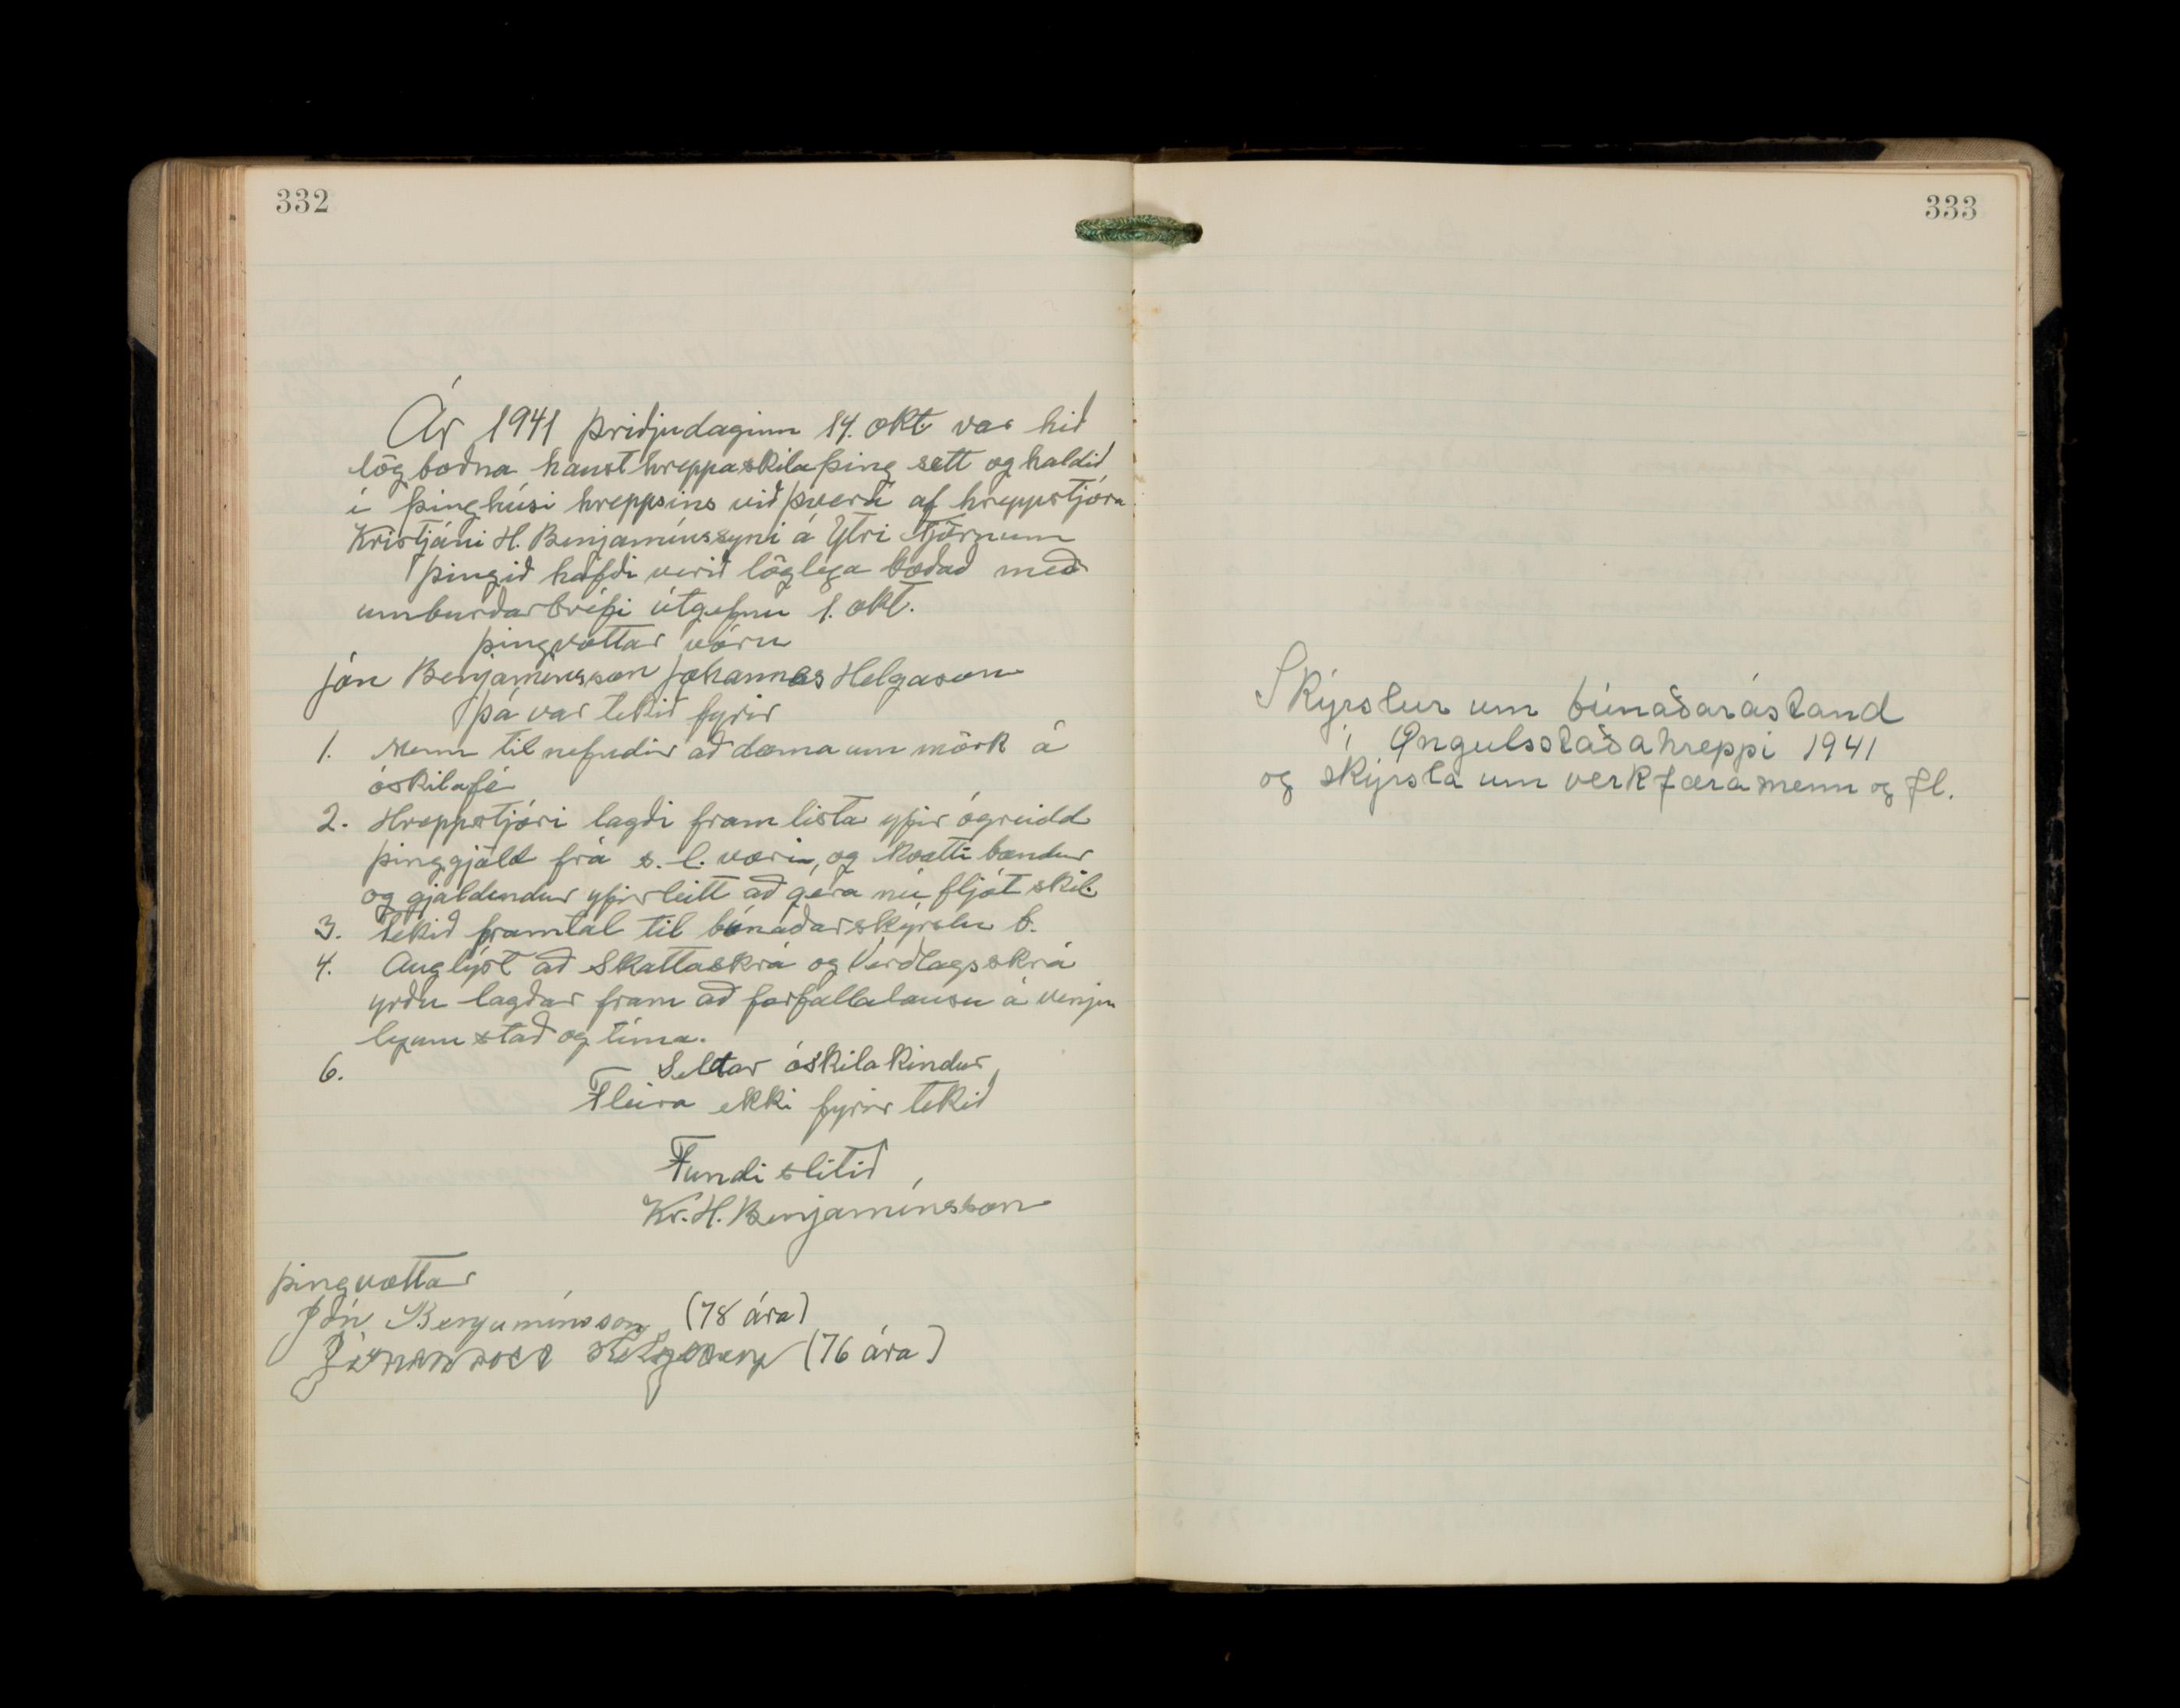 332
Ár 1941 þriðjudaginn 14. okt. var hið
lögboðna hausthreppaskilaþing sett og haldið
í þinghúsi hreppsins við Þverá af hreppstjóra
Kristjáni H. Benjamínssyni á Ytri Tjörnum
Þingið hafði verið löglega boðað með
umburðarbréfi útgefnu 1. okt.
Þingvottar vóru
Jón Benjamínsson Jóhannes Helgason
Þá var tekið fyrir
1. Menn tilnefndir að dæma um mörk á
óskilafé
2. Hreppstjóri lagði fram lista yfir ógreidd
þinggjöld frá s. l. vori, og hvatti bændur
og gjaldendur yfirleitt að gera nú fljót skil.
3. Tekið framtal til búnaðarskýrslu b.
4. Auglýst að Skattaskrá og Verðlagsskrá
yrðu lagðar fram að forfallalausu á venju
legum stað og tíma.
6. Seldar óskilakindur
Fleira ekki fyrir tekið
Fundi slitið
Kr. H. Benjamínsson
Þingvottar
Jón Benjamínsson (78 ára)
Jóhannes Helgason (76 ára)
333
Skýrslur um búnaðarástand
í Öngulsstaðahreppi 1941
og skýrsla um verkfæra menn og fl.